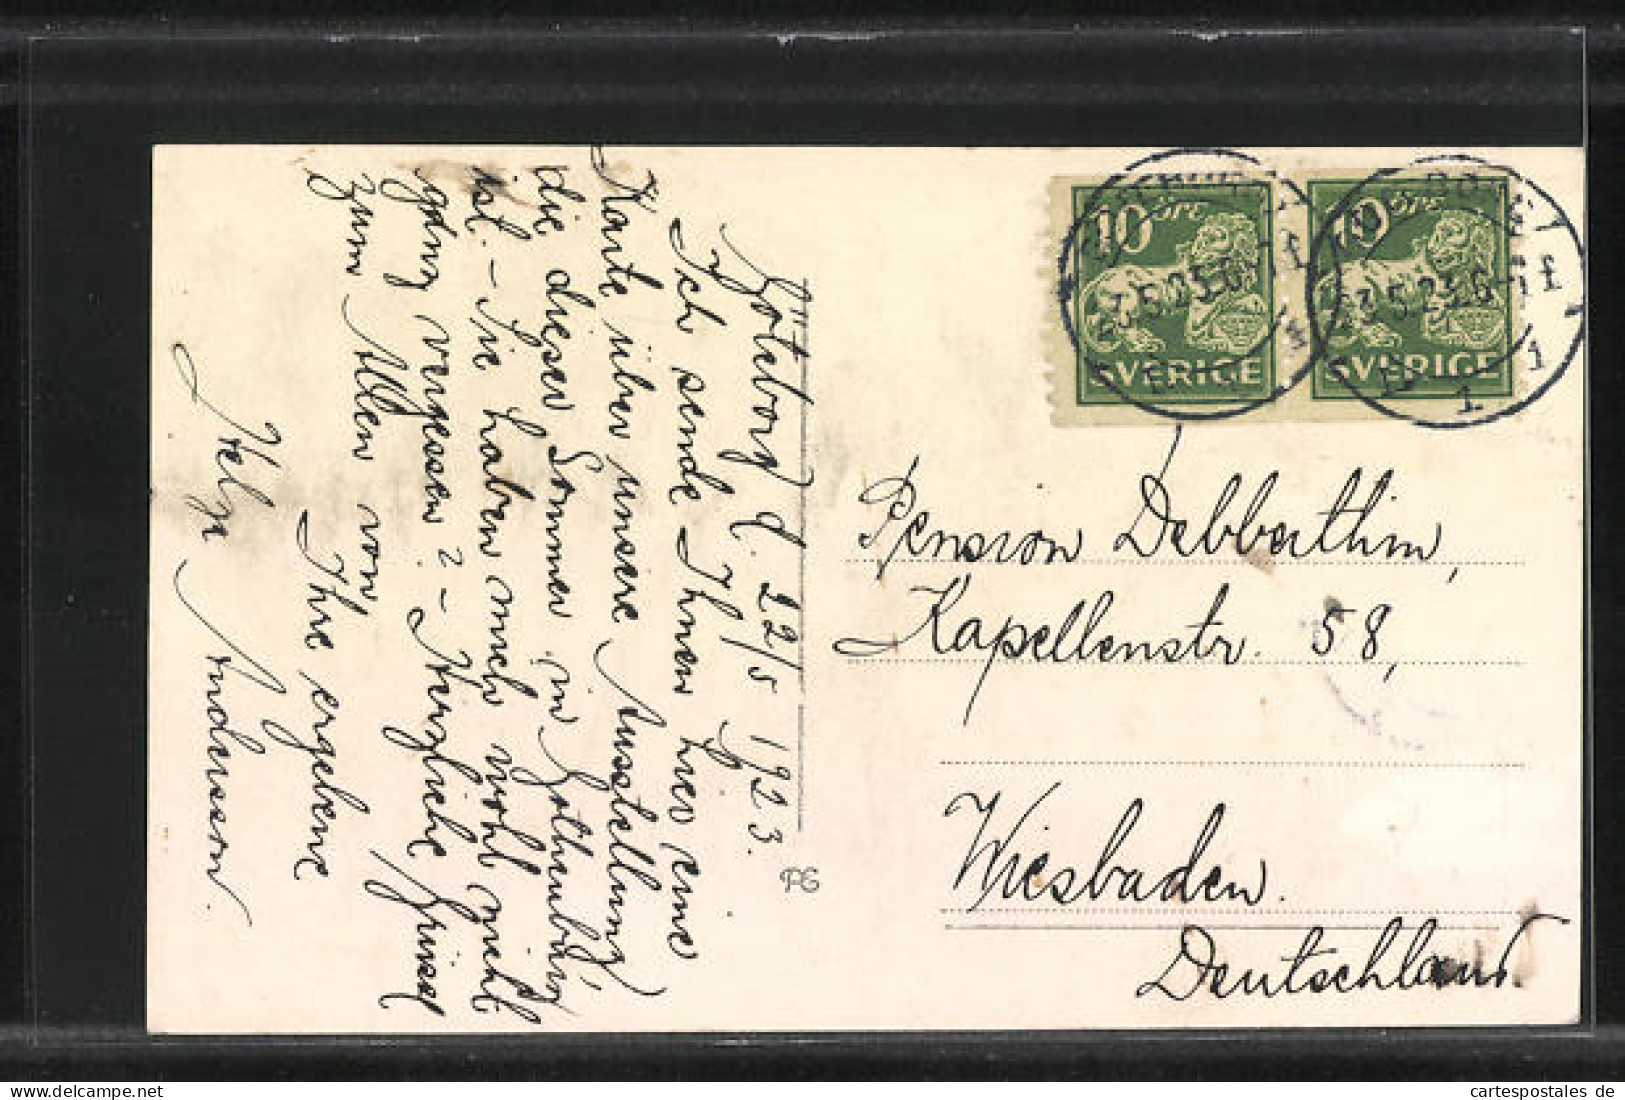 Göteborg d. 22/5 1923.
Ich sende Ihnen hier eine
Karte über unsere Ausstellung
die dieser Sommer in Gothenburg
ist. – Sie haben mich wohl nicht
ganz vergessen? – Herzliche Grüsse
zum Allen von
Ihre ergebene
Helga Andersson.
PG
10 öre
SVERIGE
10 öre
SVERIGE
23.5.23.6-
23.5.23.6-
1
1
Pension Debberthin,
Kapellenstr. 58,
Wiesbaden.
Deutschland.
www.cartespostales.de
cartespostales.de